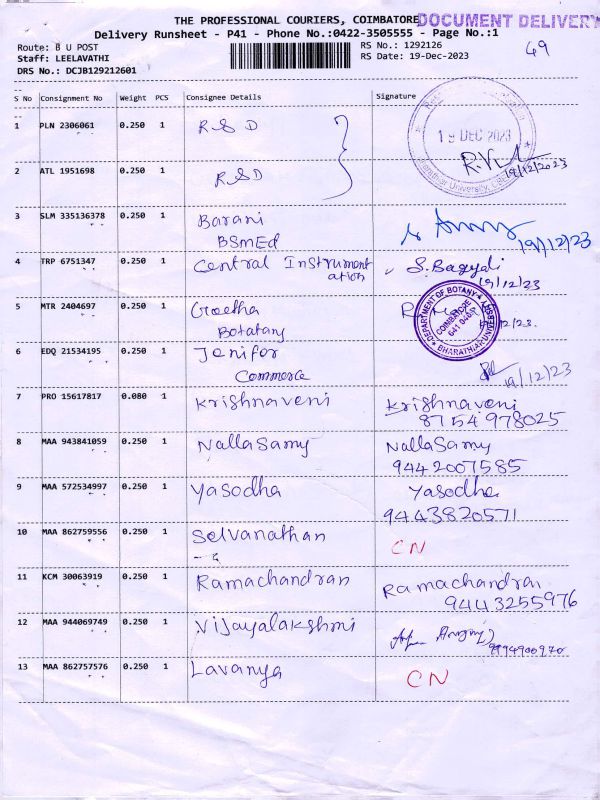 THE PROFESSIONAL COURIERS, COIMBATORE
DOCUMENT DELIVERY
Delivery Runsheet - P41 - Phone No.:0422-3505555 - Page No.:1
Route: B U POST
RS No.: 1292126
49
Staff: LEELAVATHI
RS Date: 19-Dec-2023
DRS No.: DCJB129212601
S No Consignment No Weight PCS Consignee Details Signature
1 PLN 2306061 0.250 1 RSD
19 DEC 2023
19/12/2023
2 ATL 1951698 0.250 1 RSD
3 SLM 335136378 0.250 1 Barani
BSmEd
19/12/23
4 TRP 6751347 0.250 1 Central Instrument
ation
S.Bagyali
19/12/23
5 MTR 2404697 0.250 1 Geetha
Botatany
DEPARTMENT OF BOTANY
COIMBATORE
641 046
BHARATHIAR UNIVERSITY
6 EDQ 21534195 0.250 1 Jenifor
Commerce
19/12/23
7 PRO 15617817 0.080 1 Krishnaveni Krishnaveni
8754978025
8 MAA 943841059 0.250 1 NallaSamy NallaSamy
9442007585
9 MAA 572534997 0.250 1 Yasodha Yasodha
9443820571
10 MAA 862759556 0.250 1 Selvanathan CN
11 KCM 30063919 0.250 1 Ramachandran Ramachandran
9443255976
12 MAA 944069749 0.250 1 Vijayalakshmi
9994900970
13 MAA 862757576 0.250 1 Lavanya CN